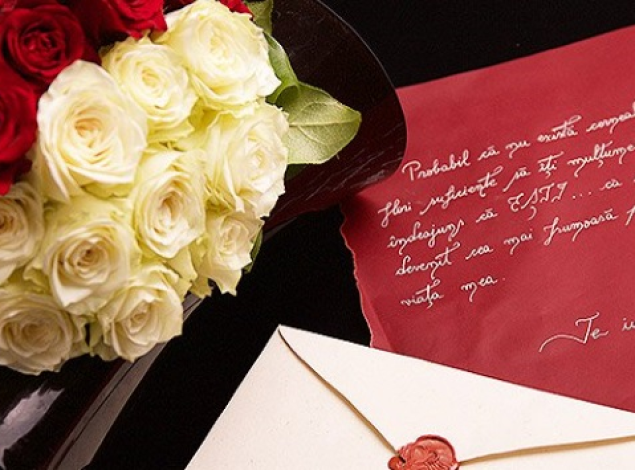 Probabil că nu există
flori suficiente să îți
îndeajuns că EȘTI... că
devenit cea mai frumoasă
viața mea.
Te